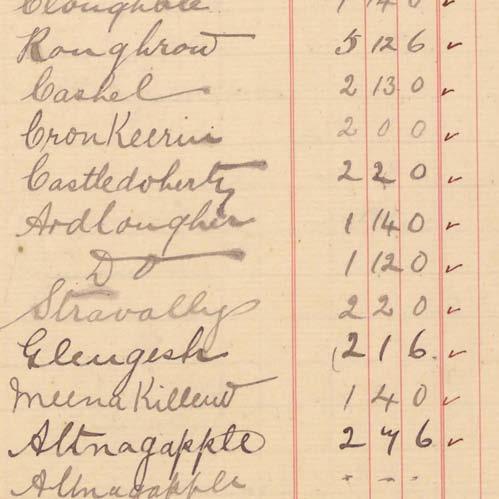 Cloughbole 1 14 0 ✓
Roughrow 5 12 6 ✓
Cashel 2 13 0 ✓
CronKeerin 2 0 0 ✓
Castledoherty 2 2 0 ✓
Ardlougher 1 14 0 ✓
Do 1 12 0 ✓
Stravally 2 2 0 ✓
Glengesh 2 1 6 ✓
MeenaKillew 1 4 0 ✓
Altnagapple 2 7 6 ✓
Altnagapple - - -